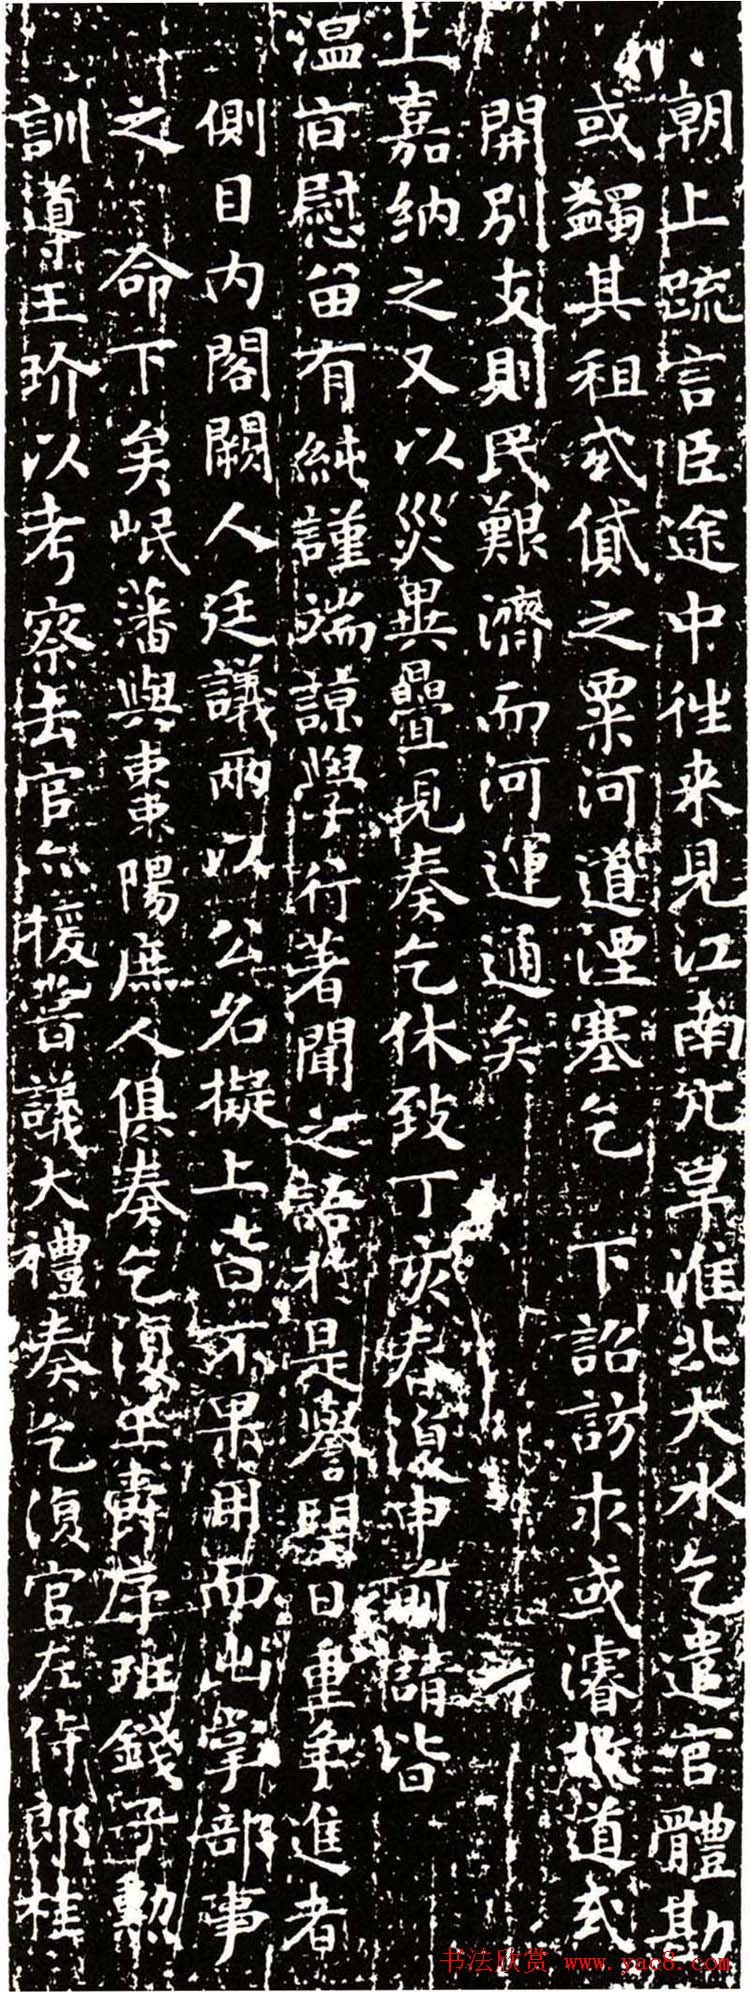 朝上疏言臣途中往来見江南亢旱淮北大水乞遣官體勘
或蠲其租或貸之粟河道湮塞乞 下詔訪求或濬故道或
開別支則民艱濟而河運通矣
上嘉納之又以災異疊見奏乞休致丁亥春復申前請皆
温旨慰留有純謹端諒學行著聞之語於是譽望日重争進者
側目内閣闕人廷議兩以公名擬上皆不果用而出掌部事
之 命下矣岷藩與東東陽庶人俱奏乞復王壽序班錢子勳
訓導王玠以考察去官亦援昔議大禮奏乞復官左侍郎桂
书法欣赏 www.yac8.com